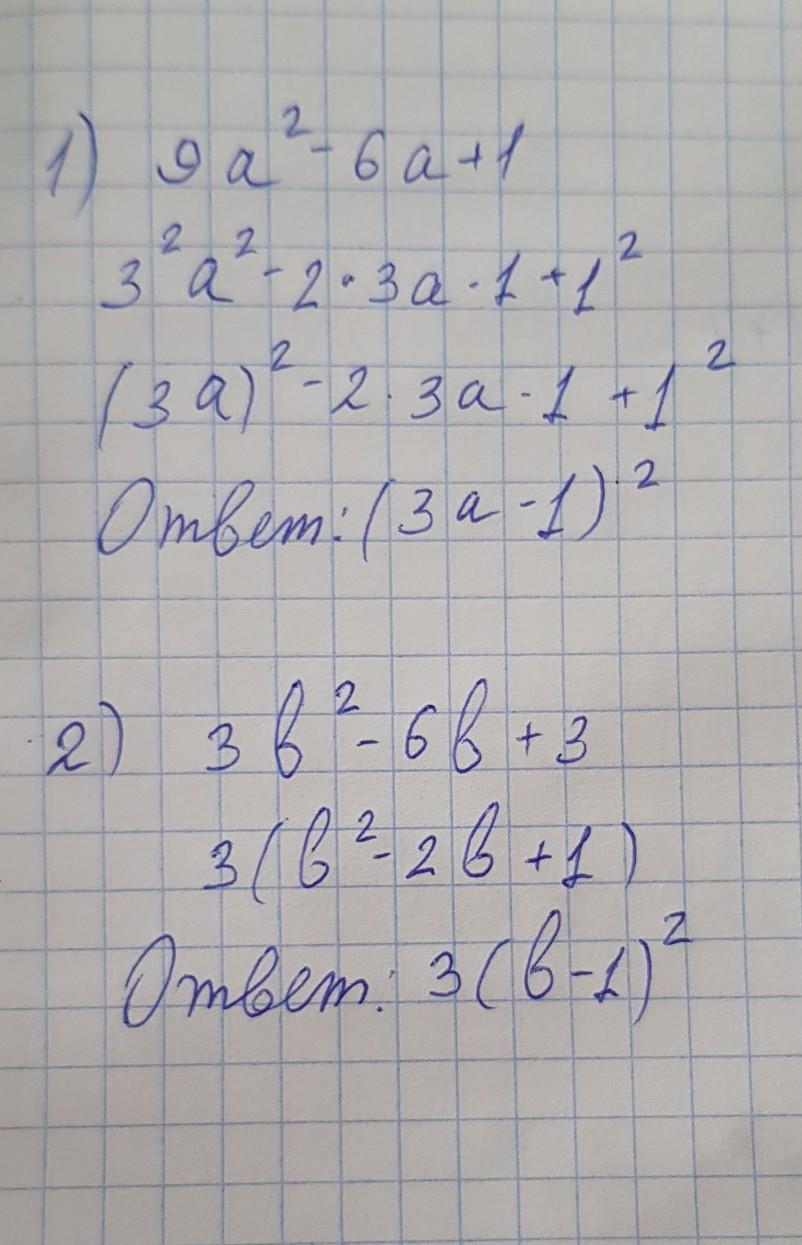 1) 9a² - 6a + 1
3²a² - 2 · 3a · 1 + 1²
(3a)² - 2 · 3a · 1 + 1²
Ответ: (3a - 1)²
2) 3b² - 6b + 3
3(b² - 2b + 1)
Ответ: 3(b - 1)²